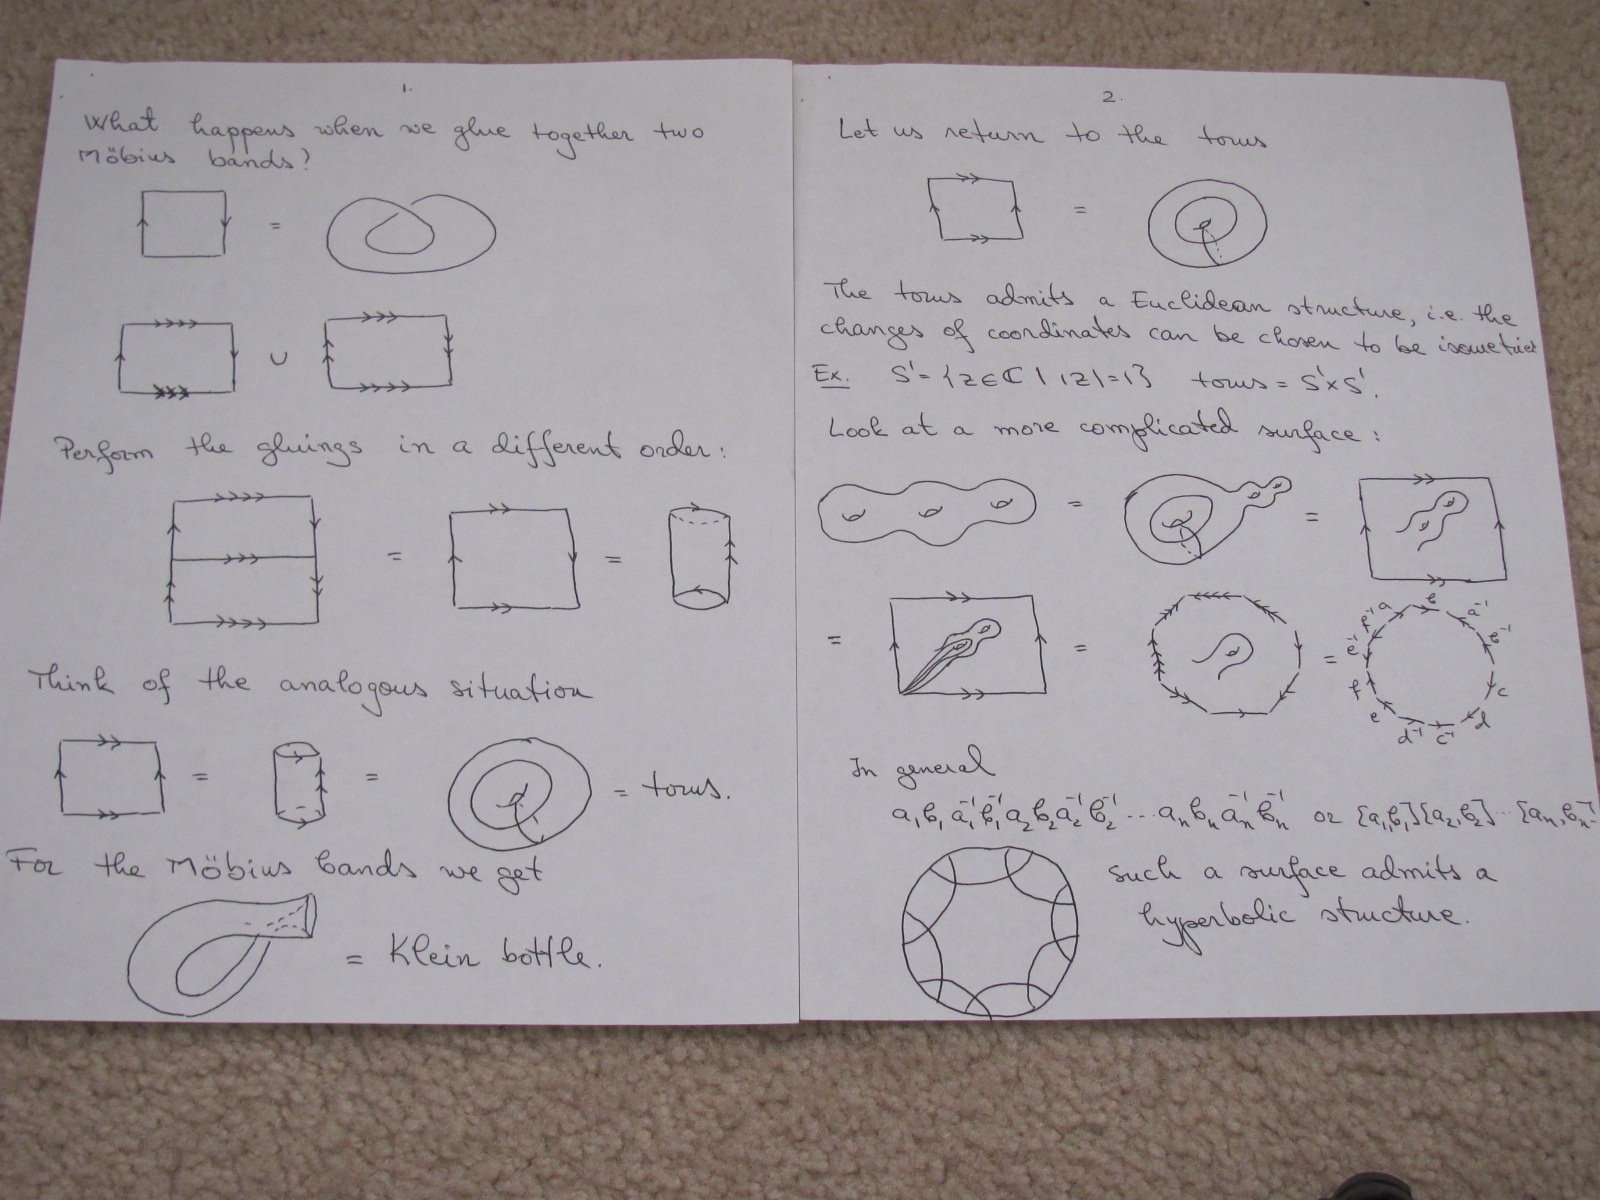 1.
What happens when we glue together two
Möbius bands?
=
∪
Perform the gluings in a different order:
= =
Think of the analogous situation
= = = torus.
For the Möbius bands we get
= Klein bottle.
2.
Let us return to the torus
=
The torus admits a Euclidean structure, i.e. the
changes of coordinates can be chosen to be isometries
Ex. S¹={z∈ℂ | |z|=1} torus = S¹×S¹.
Look at a more complicated surface:
= =
= = = a b a⁻¹ b⁻¹ c d c⁻¹ d⁻¹ e f e⁻¹ f⁻¹
In general
a₁b₁a₁⁻¹b₁⁻¹a₂b₂a₂⁻¹b₂⁻¹ ... aₙbₙaₙ⁻¹bₙ⁻¹ or [a₁,b₁][a₂,b₂]...[aₙ,bₙ]
such a surface admits a
hyperbolic structure.